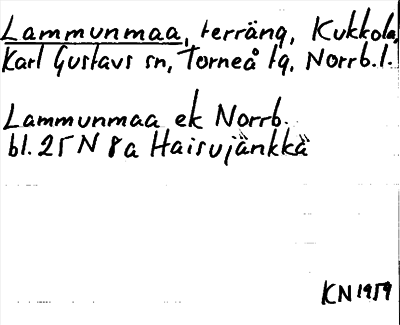 Lammunmaa, terräng, Kukkola,
Karl Gustavs sn, Torneå tg, Norrb.l.
Lammunmaa ek Norrb.
bl. 25 N 8a Haisujänkkä
KN 1959